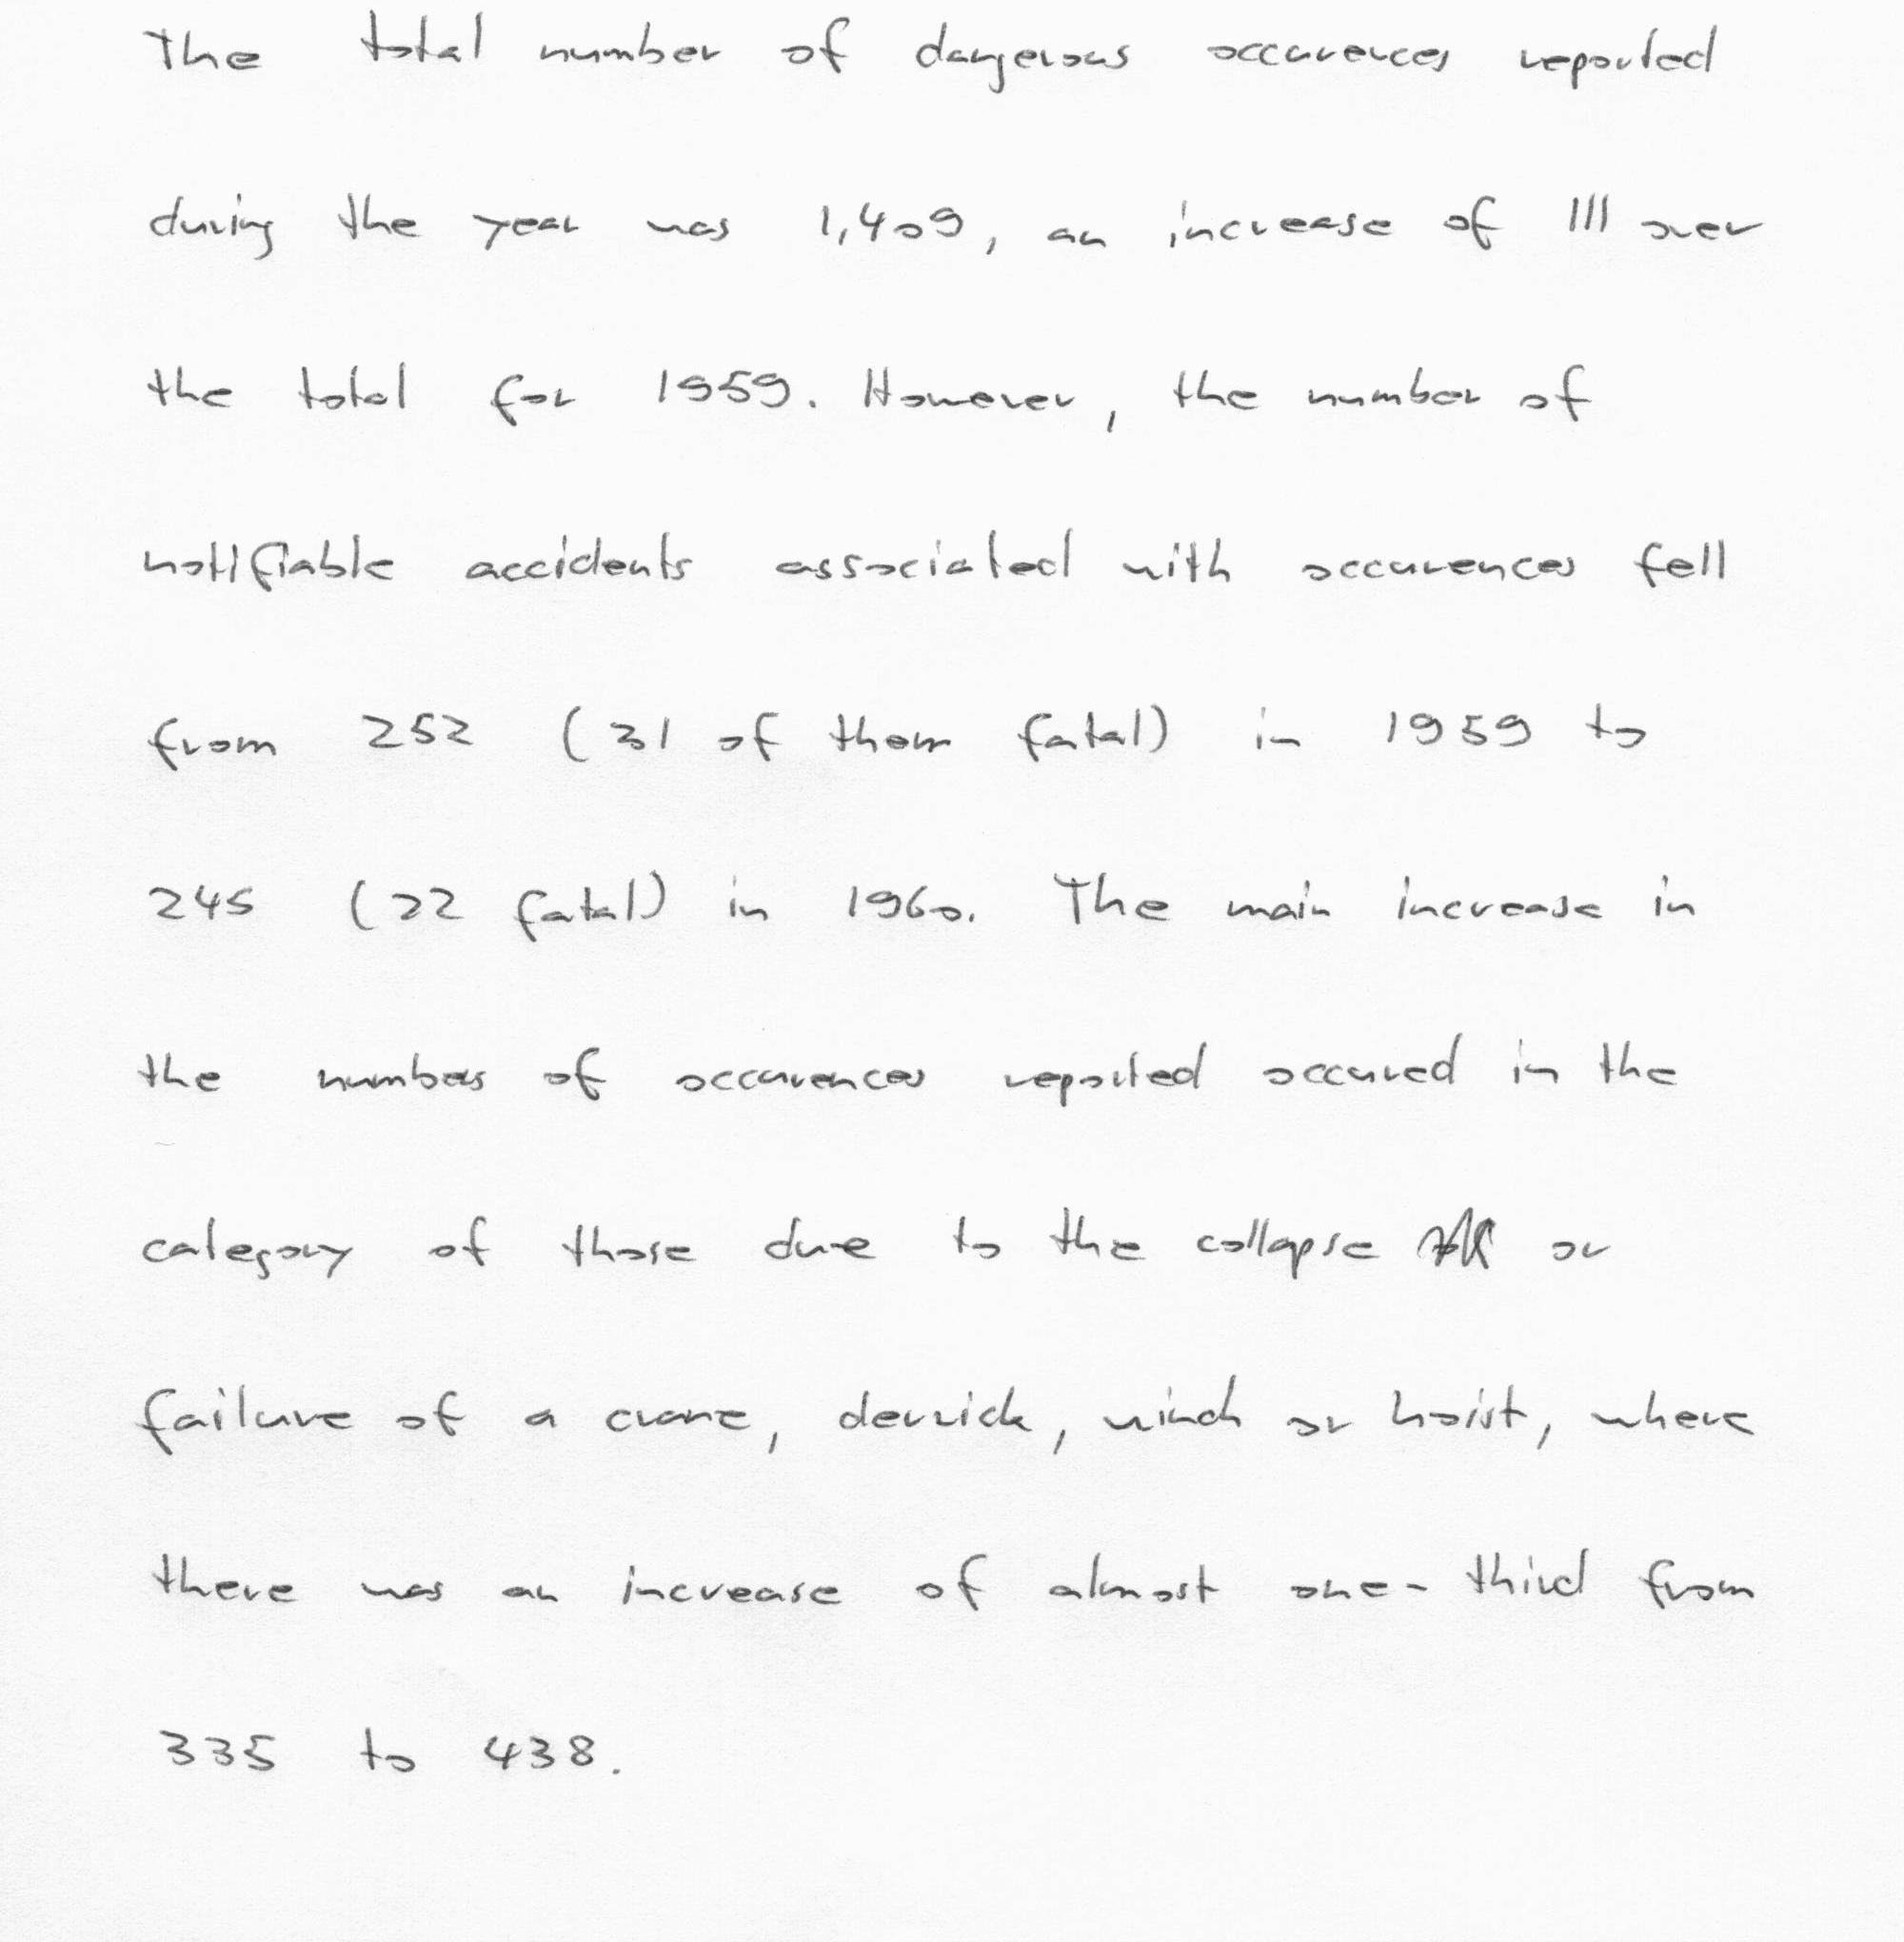 The total number of dangerous occurences reported
during the year was 1,409, an increase of 111 over
the total for 1959. However, the number of
notifiable accidents associated with occurences fell
from 252 (31 of them fatal) in 1959 to
245 (22 fatal) in 1960. The main increase in
the numbers of occurences reported occured in the
category of those due to the collapse or
failure of a crane, derrick, winch or hoist, where
there was an increase of almost one-third from
335 to 438.